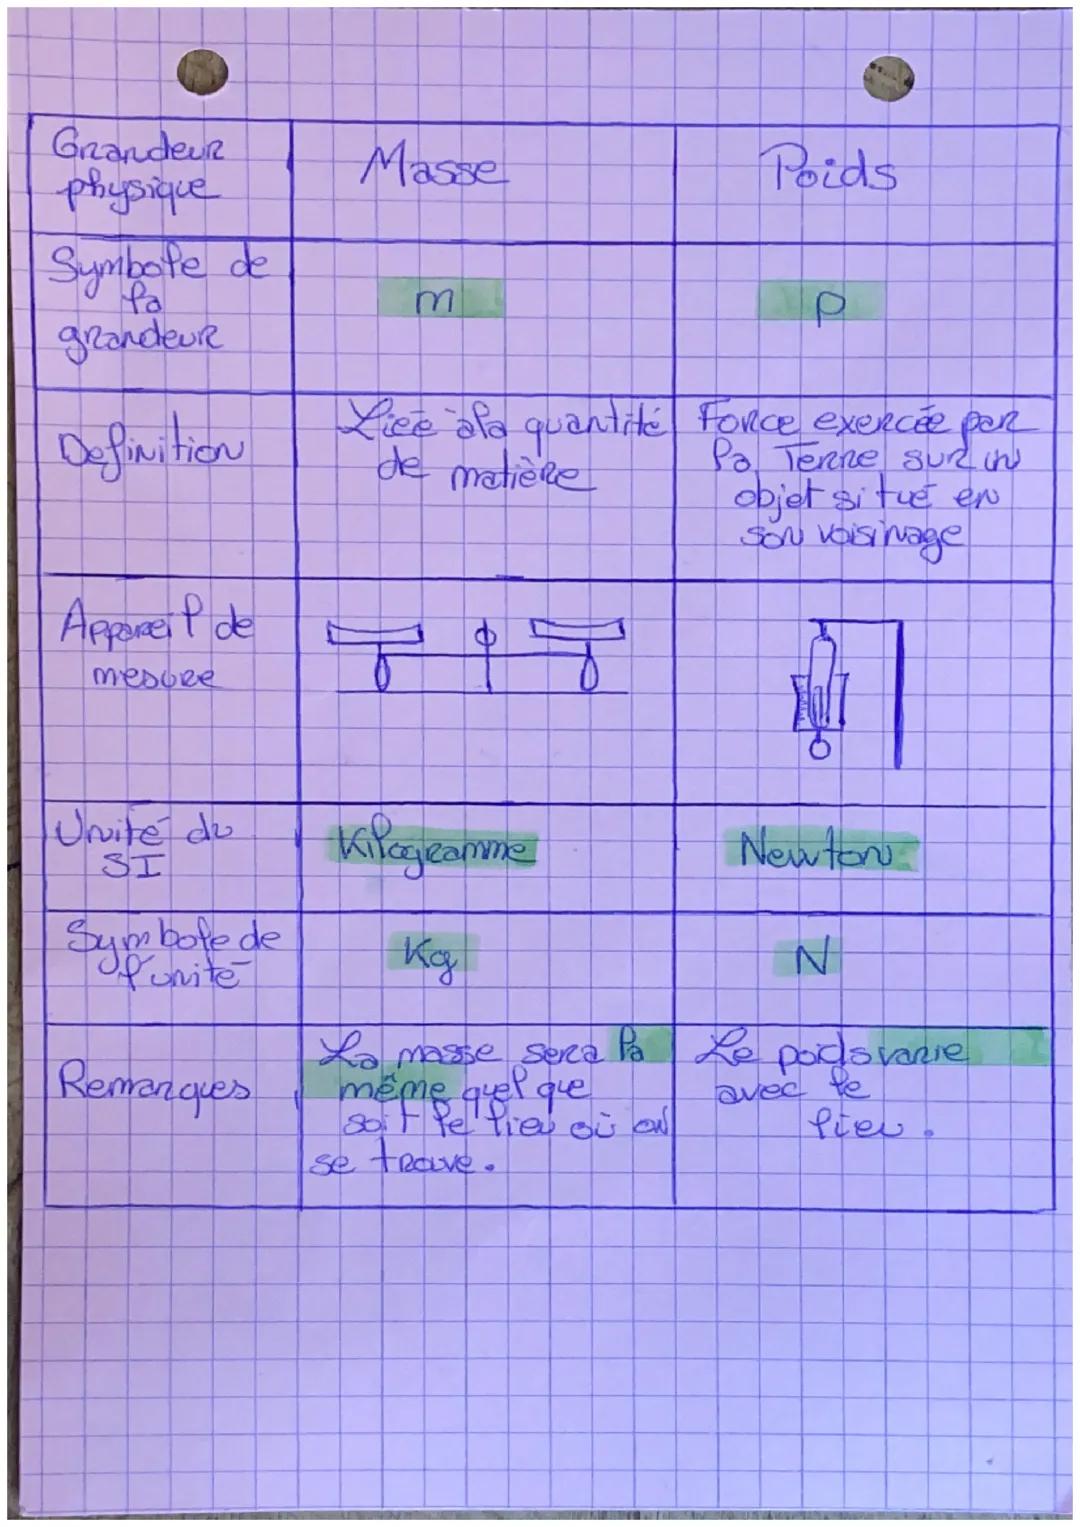 Grandeur
physique
Masse
Poids
Symbole de
la
grandeur
m
P
Definition
Liée à la quantité
de matière
Force exercée par
la Terre sur un
objet situé en
son voisinage
Appareil de
mesure
Unité du
SI
Kilogramme
Newton
Symbole de
l'unité
Kg
N
Remarques
La masse sera la
même quel que
soit le lieu où on
se trouve.
Le poids varie
avec le
lieu.